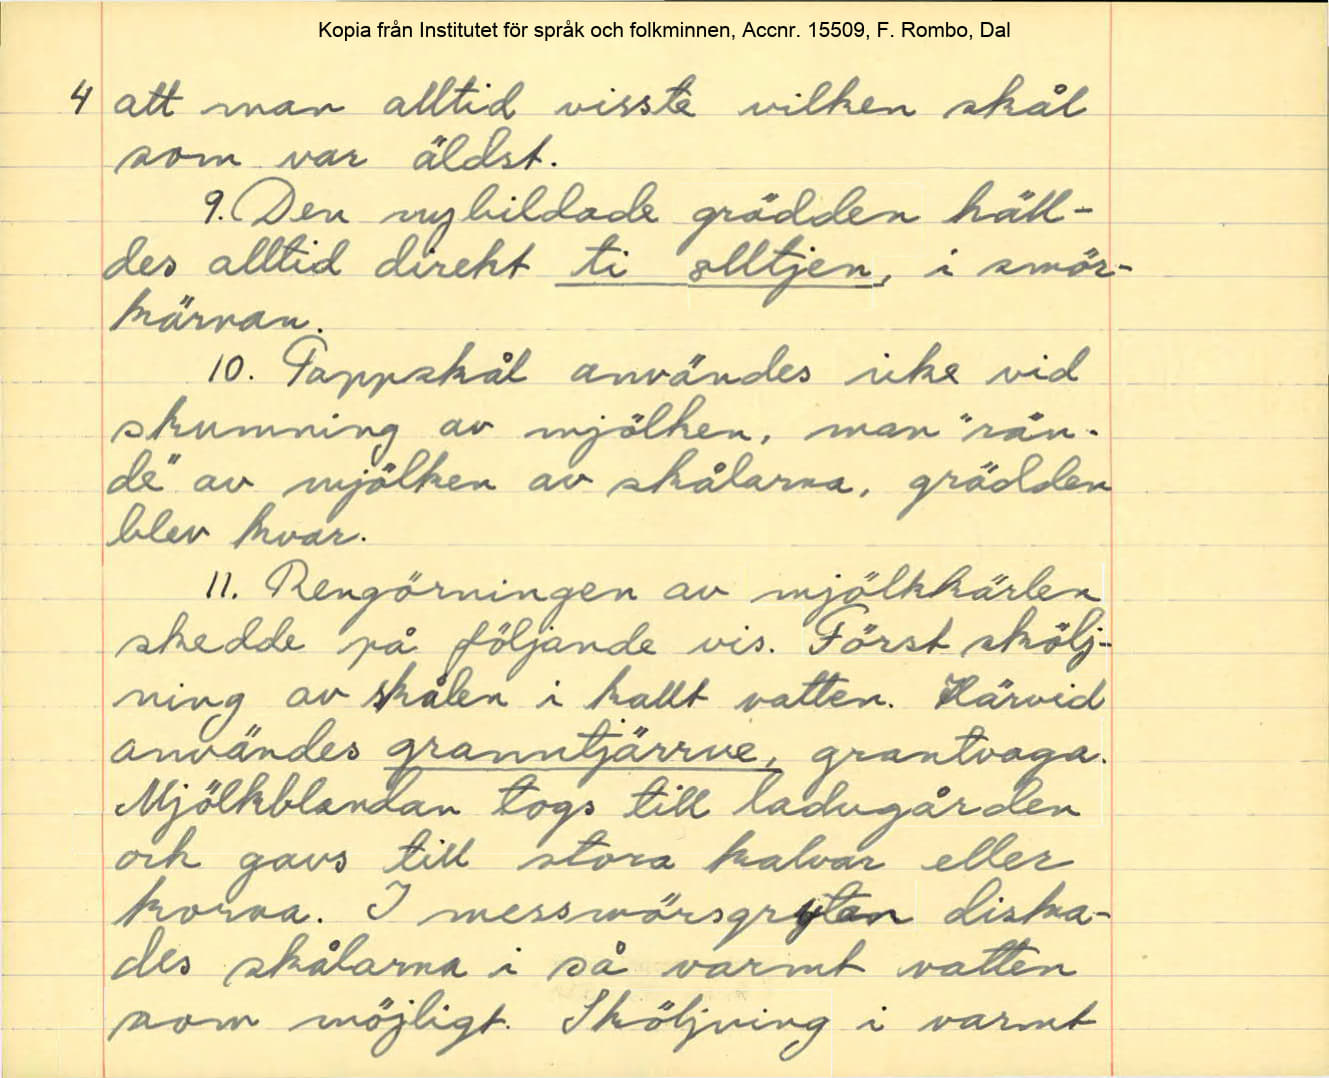 Kopia från Institutet för språk och folkminnen, Accnr. 15509, F. Rombo, Dal
4 att man alltid visste vilken skål
som var äldst.
9. Den nybildade grädden häll-
des alltid direkt ti olltjen, i smör-
kärnan.
10. Tappskål användes icke vid
skumning av mjölken, man "rän-
de" av mjölken av skålarna, grädden
blev kvar.
11. Rengörningen av mjölkkärlen
skedde på följande vis. Först skölj-
ning av skålen i kallt vatten. Härvid
användes granntjärrve, grantvaga.
Mjölkblandan togs till ladugården
och gavs till stora kalvar eller
korna. I messmörsgrytan diska-
des skålarna i så varmt vatten
som möjligt. Sköljning i varmt